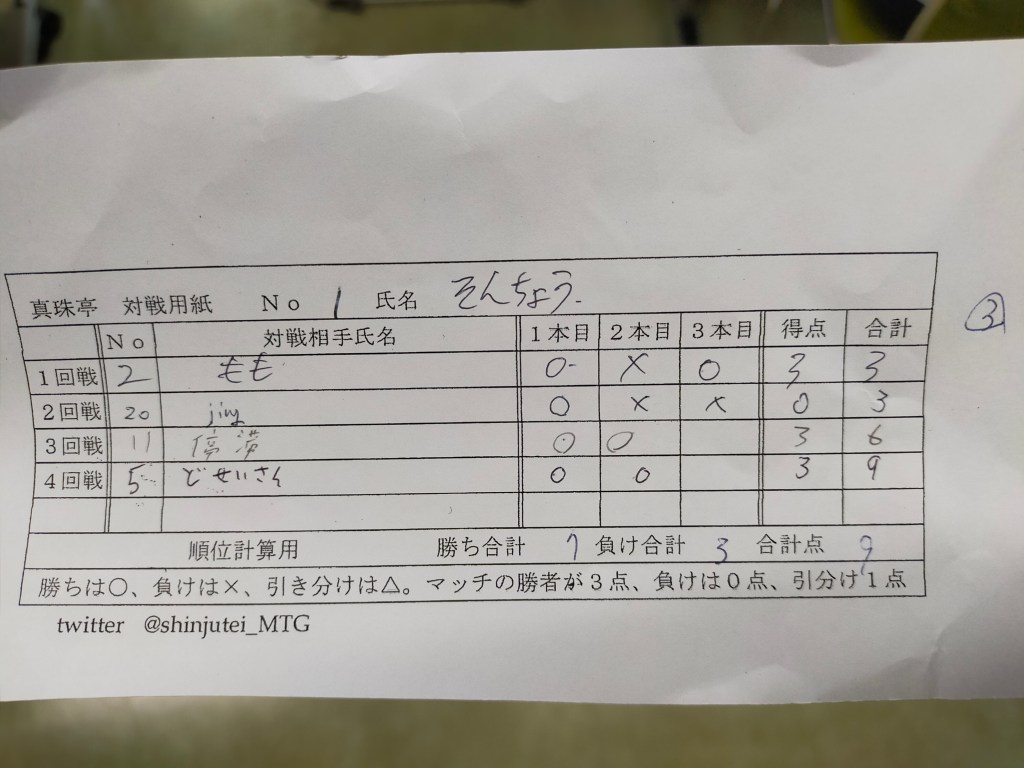 真珠亭 対戦用紙 No 1 氏名 そんちょう.
③
No 対戦相手氏名 1本目 2本目 3本目 得点 合計
1回戦 2 もも ○ × ○ 3 3
2回戦 20 jing ○ × × 0 3
3回戦 11 停滞 ○ ○ 3 6
4回戦 5 どせいさん ○ ○ 3 9
順位計算用 勝ち合計 7 負け合計 3 合計点 9
勝ちは○、負けは×、引き分けは△。マッチの勝者が3点、負けは0点、引分け1点
twitter @shinjutei_MTG